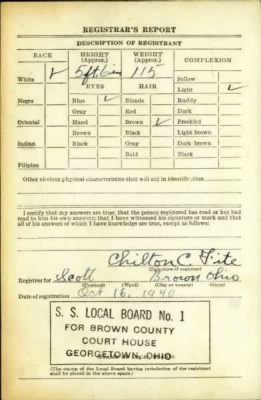 REGISTRAR'S REPORT
DESCRIPTION OF REGISTRANT
RACE
HEIGHT
(Approx.)
WEIGHT
(Approx.)
COMPLEXION
White ✓
5 ft. 6 in
115
Sallow
EYES
HAIR
Light ✓
Negro
Blue ✓
Blonde
Ruddy
Gray
Red
Dark
Oriental
Hazel
Brown ✓
Freckled
Brown
Black
Light brown
Indian
Black
Gray
Dark brown
Bald
Black
Filipino
Other obvious physical characteristics that will aid in identification
I certify that my answers are true; that the person registered has read or has had
read to him his own answers; that I have witnessed his signature or mark and that
all of his answers of which I have knowledge are true, except as follows:
Chilton C. Fite
(Signature of registrar)
Registrar for Scott Brown Ohio
(Precinct) (Ward) (City or county) (State)
Date of registration Oct 16, 1940
S. S. LOCAL BOARD No. 1
FOR BROWN COUNTY
COURT HOUSE
GEORGETOWN, OHIO
(The stamp of the Local Board having jurisdiction of the registrant
shall be placed in the above space.)